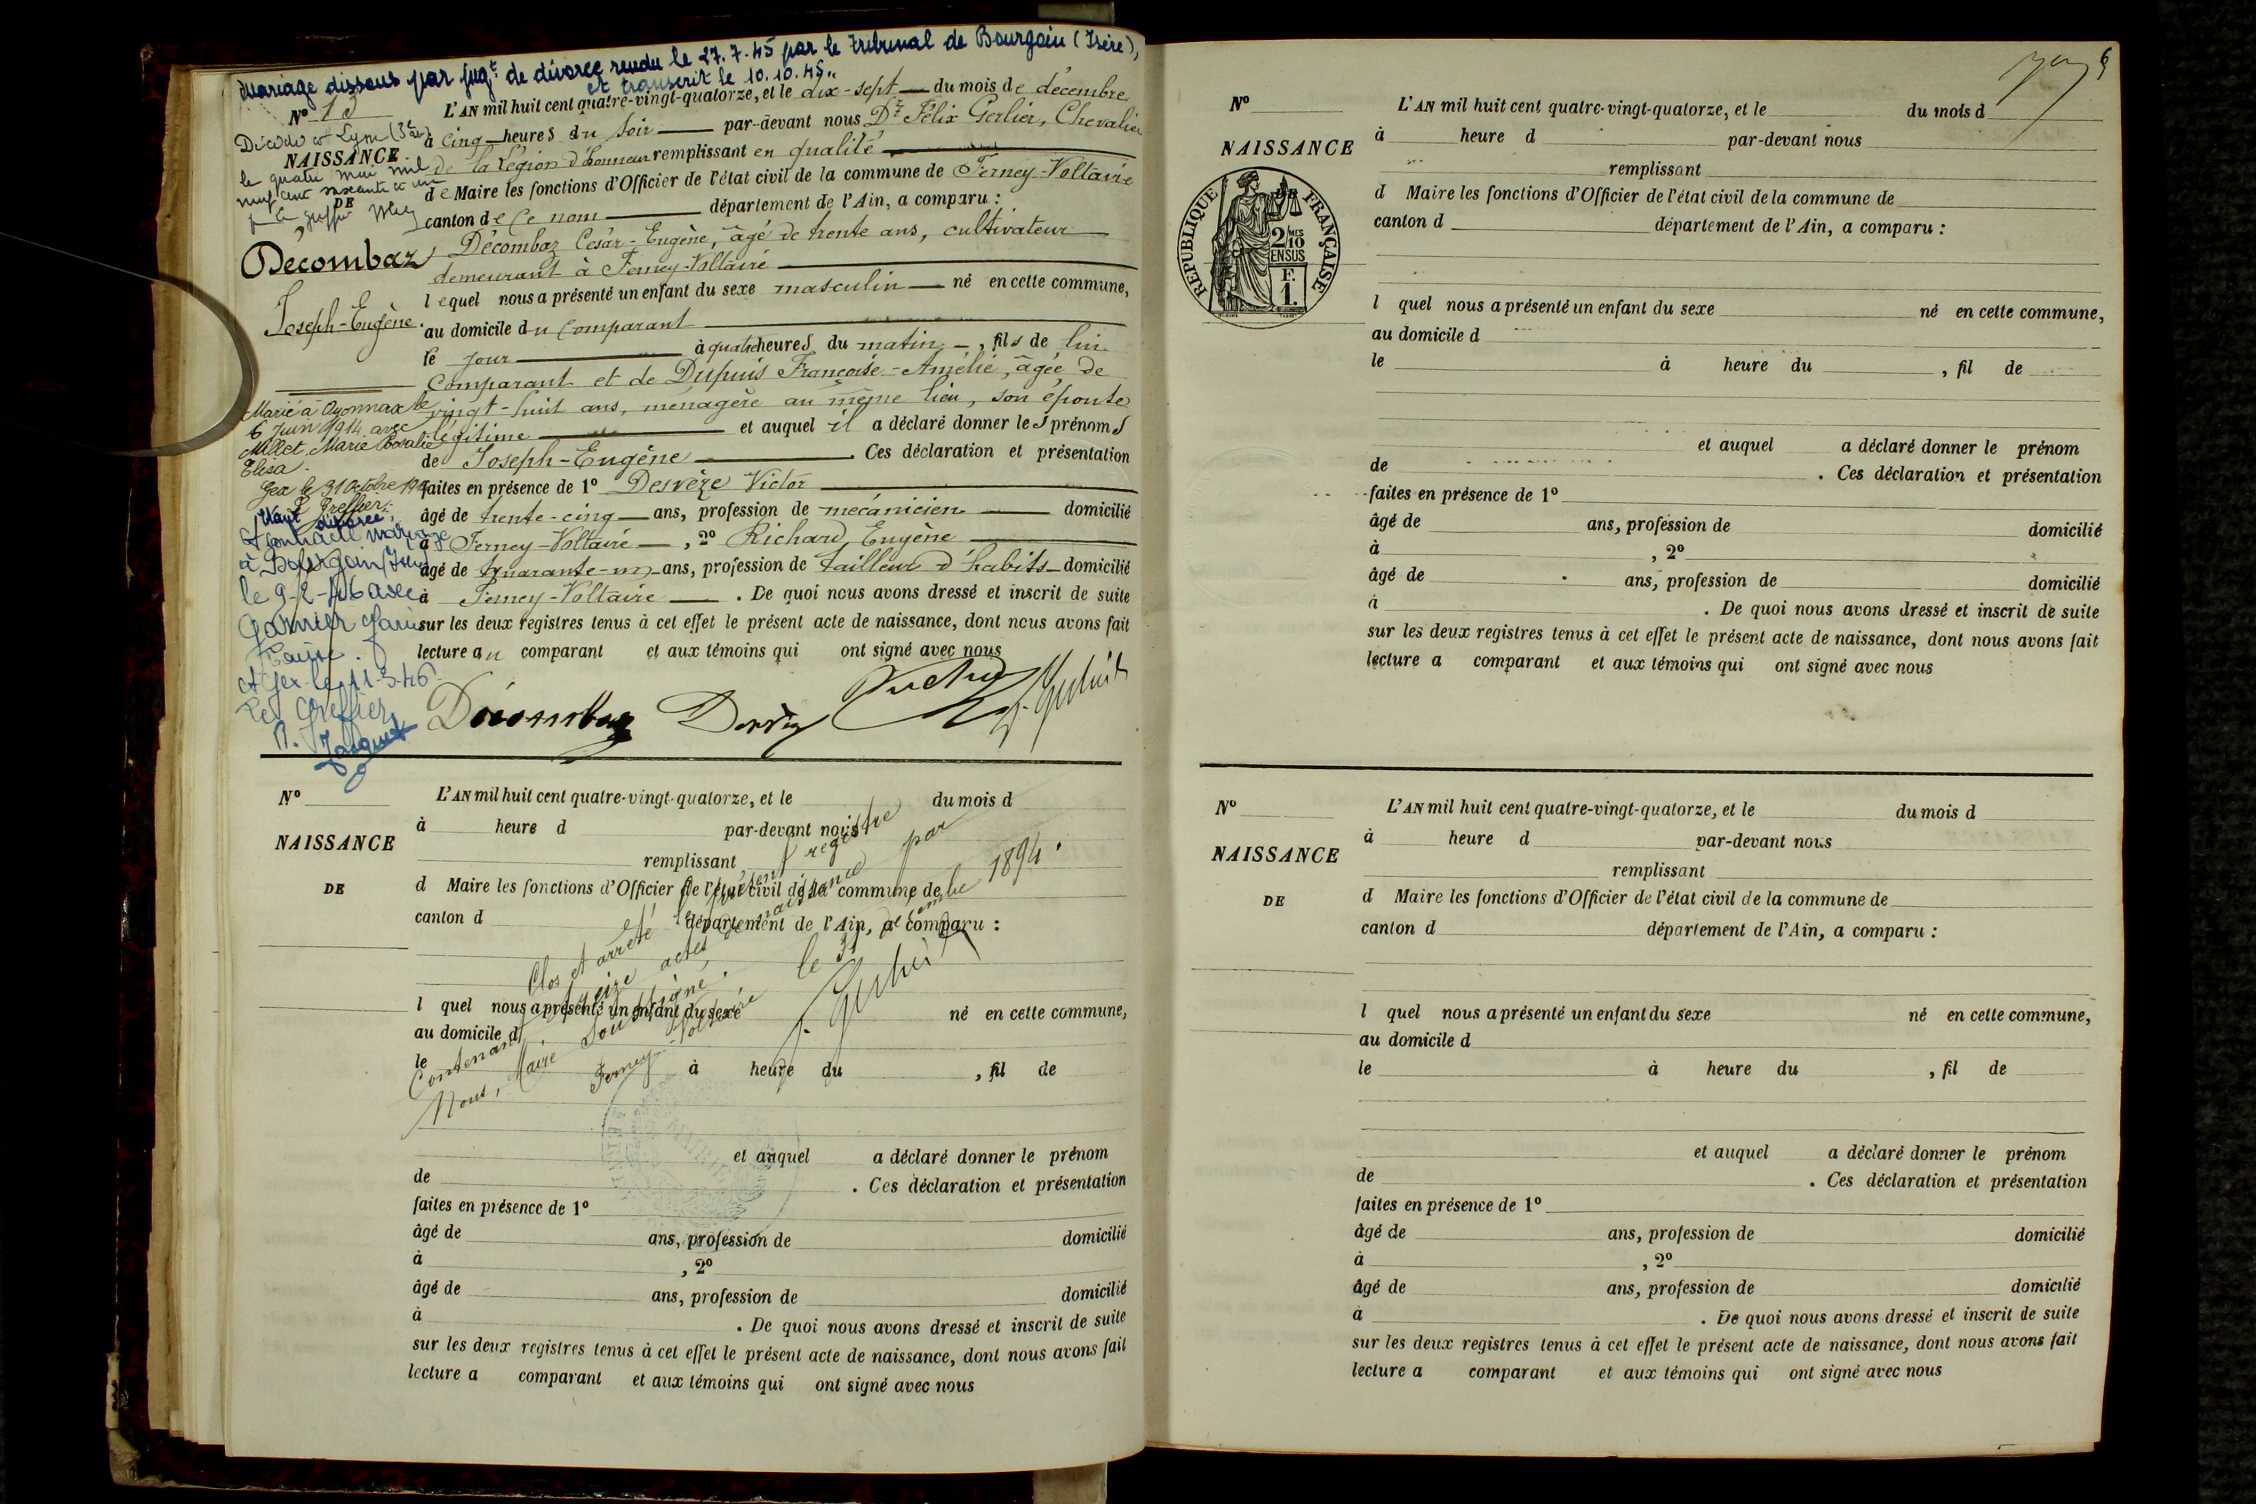 Mariage dissous par jugt de divorce rendu le 27.7.45 par le tribunal de Bourgoin (Isère),
et transcrit le 10.10.45.
No 13
L'AN mil huit cent quatre-vingt-quatorze, et le dix-sept du mois de décembre
à cinq heures du soir par-devant nous Dr Félix Gerlier, Chevalier
de la Légion d'honneur remplissant en qualité
de Maire les fonctions d'Officier de l'état civil de la commune de Ferney-Voltaire
canton de ce nom département de l'Ain, a comparu :
Décombaz César-Eugène, âgé de trente ans, cultivateur
demeurant à Ferney-Voltaire
lequel nous a présenté un enfant du sexe masculin né en cette commune,
au domicile du comparant
le jour à quatre heures du matin, fils de lui
comparant et de Dupuis Françoise-Amélie, âgée de
vingt-huit ans, ménagère au même lieu, son épouse
légitime et auquel il a déclaré donner les prénoms
de Joseph-Eugène. Ces déclaration et présentation
faites en présence de 1o Desvèze Victor
âgé de trente-cinq ans, profession de mécanicien domicilié
à Ferney-Voltaire, 2o Richard Eugène
âgé de quarante-un ans, profession de tailleur d'habits domicilié
à Ferney-Voltaire. De quoi nous avons dressé et inscrit de suite
sur les deux registres tenus à cet effet le présent acte de naissance, dont nous avons fait
lecture au comparant et aux témoins qui ont signé avec nous
Décombaz
Décédé à Lyon (3e)
NAISSANCE
le quatre mai mil
neuf cent soixante et un
DE
Décombaz
Joseph-Eugène.
Marié à Oyonnax le
6 Juin 1914 avec
Millet Marie Rosalie
Elisa.
Gex le 31 octobre
Le Greffier
divorcé,
a contracté mariage
à Bourgoin (Isère)
le 9-2-46 avec
Garnier
Gex le 11-3-46
Le Greffier
No
NAISSANCE
DE
L'AN mil huit cent quatre-vingt-quatorze, et le du mois d
à heure d par-devant nous
remplissant
d Maire les fonctions d'Officier de l'état civil de la commune de
canton d département de l'Ain, a comparu :
l quel nous a présenté un enfant du sexe né en cette commune,
au domicile d
le à heure du , fil de
et auquel a déclaré donner le prénom
de . Ces déclaration et présentation
faites en présence de 1o
âgé de ans, profession de domicilié
à , 2o
âgé de ans, profession de domicilié
à . De quoi nous avons dressé et inscrit de suite
sur les deux registres tenus à cet effet le présent acte de naissance, dont nous avons fait
lecture a comparant et aux témoins qui ont signé avec nous
Clos et arrêté le présent registre
Contenant treize actes de naissance par
Nous, Maire soussigné.
Ferney-Voltaire le 31 décembre 1894.
No
NAISSANCE
RÉPUBLIQUE FRANÇAISE
2/10 MES
EN SUS
F.
1.
DE
L'AN mil huit cent quatre-vingt-quatorze, et le du mois d
à heure d par-devant nous
remplissant
d Maire les fonctions d'Officier de l'état civil de la commune de
canton d département de l'Ain, a comparu :
l quel nous a présenté un enfant du sexe né en cette commune,
au domicile d
le à heure du , fil de
et auquel a déclaré donner le prénom
de . Ces déclaration et présentation
faites en présence de 1o
âgé de ans, profession de domicilié
à , 2o
âgé de ans, profession de domicilié
à . De quoi nous avons dressé et inscrit de suite
sur les deux registres tenus à cet effet le présent acte de naissance, dont nous avons fait
lecture a comparant et aux témoins qui ont signé avec nous
No
NAISSANCE
DE
L'AN mil huit cent quatre-vingt-quatorze, et le du mois d
à heure d par-devant nous
remplissant
d Maire les fonctions d'Officier de l'état civil de la commune de
canton d département de l'Ain, a comparu :
l quel nous a présenté un enfant du sexe né en cette commune,
au domicile d
le à heure du , fil de
et auquel a déclaré donner le prénom
de . Ces déclaration et présentation
faites en présence de 1o
âgé de ans, profession de domicilié
à , 2o
âgé de ans, profession de domicilié
à . De quoi nous avons dressé et inscrit de suite
sur les deux registres tenus à cet effet le présent acte de naissance, dont nous avons fait
lecture a comparant et aux témoins qui ont signé avec nous